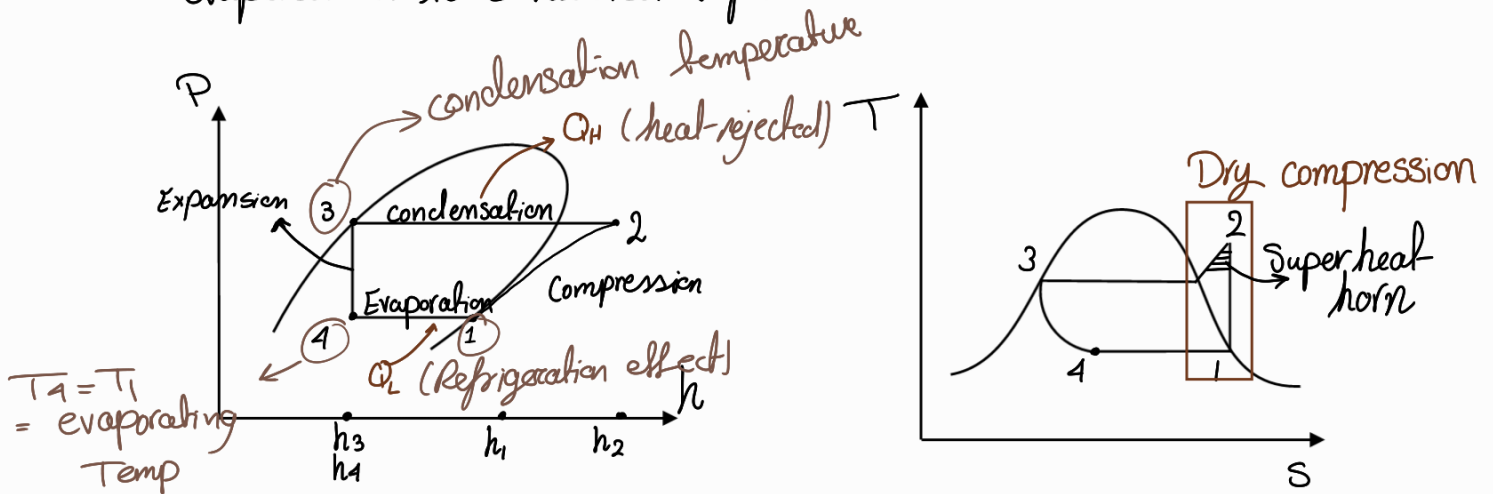 P
condensation temperature
QH (heat-rejected)
Expansion
3
condensation
2
Compression
Evaporation
4
1
QL (Refrigeration effect)
h
T4 = T1
= evaporating
Temp
h3
h4
h1
h2
T
Dry compression
2
3
Superheat-
horn
4
1
S